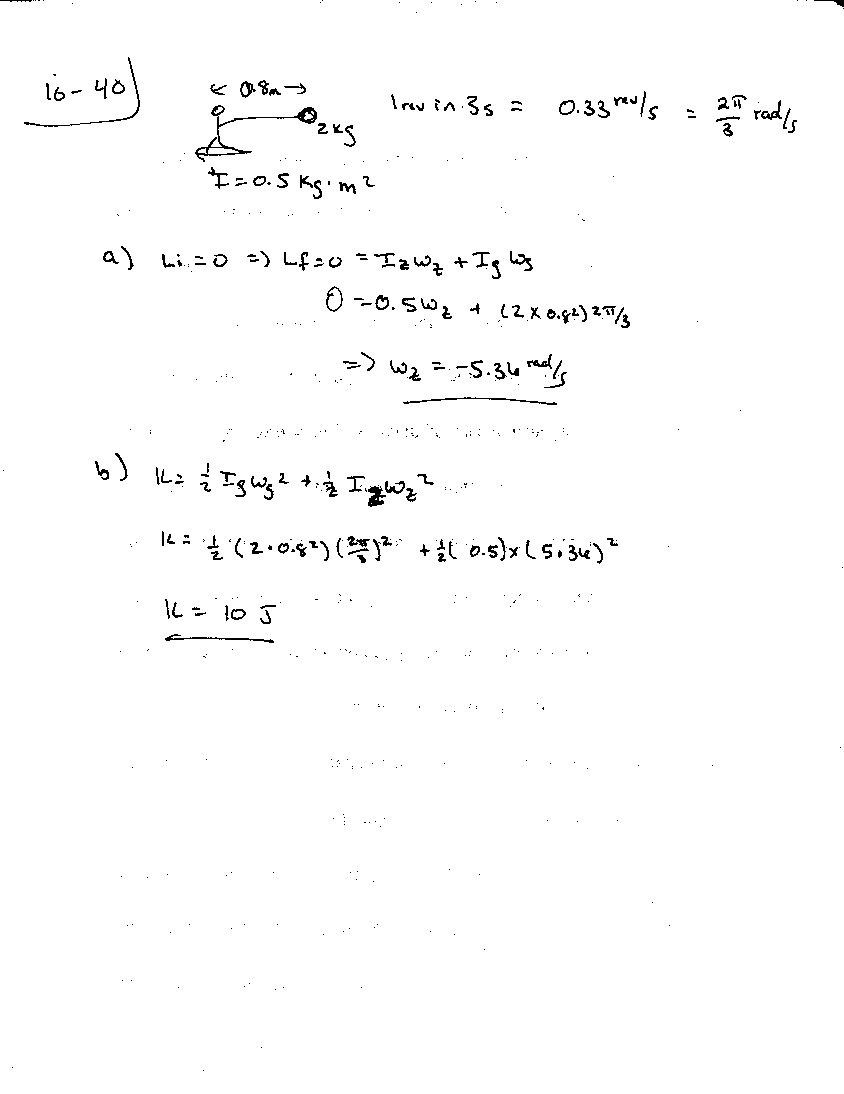 10-40
← 0.8m →
1 rev in 3s = 0.33 rev/s = 2π/3 rad/s
2 kg
I = 0.5 kg·m²
a) Li = 0 => Lf = 0 = Izωz + Igωg
0 = 0.5ωz + (2 x 0.8²) 2π/3
=> ωz = -5.36 rad/s
b) K = 1/2 Igωg² + 1/2 Izωz²
K = 1/2 (2·0.8²)(2π/3)² + 1/2(0.5)x(5.36)²
K = 10 J